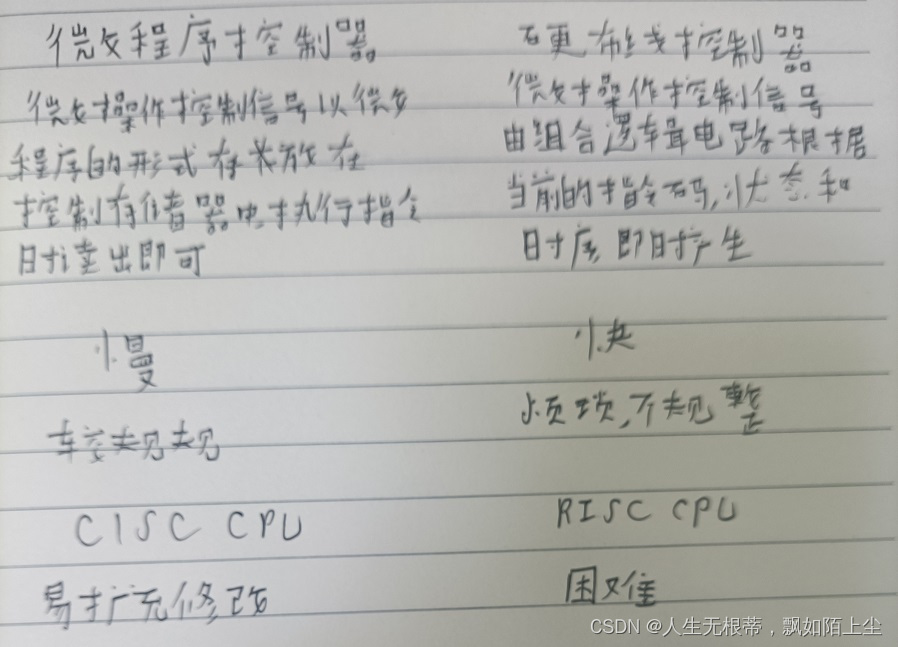 微程序控制器
微操作控制信号以微
程序的形式存放在
控制存储器中,执行指令
时读出即可
慢
较规规
CISC CPU
易扩充修改
硬布线控制器
微操作控制信号
由组合逻辑电路根据
当前的指令码,状态和
时序,即时产生
快
烦琐,不规整
RISC CPU
困难
CSDN @人生无根蒂,飘如陌上尘